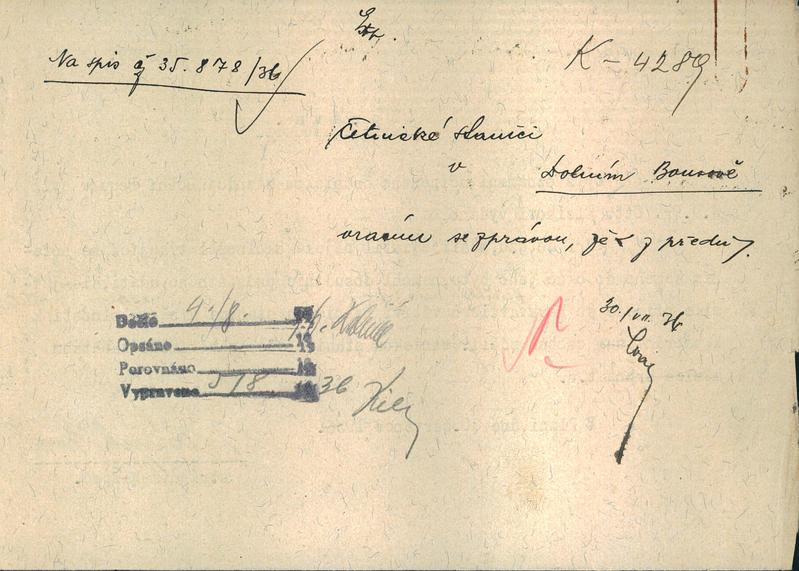 Na spis č 35.878/36
K – 4289
četnické stanici
v Dolním Bousově
vracím se zprávou, že
30./VII. 36
Došlo 4./8. 19
Opsáno 19
Porovnáno 19
Vypraveno 5/8 1936